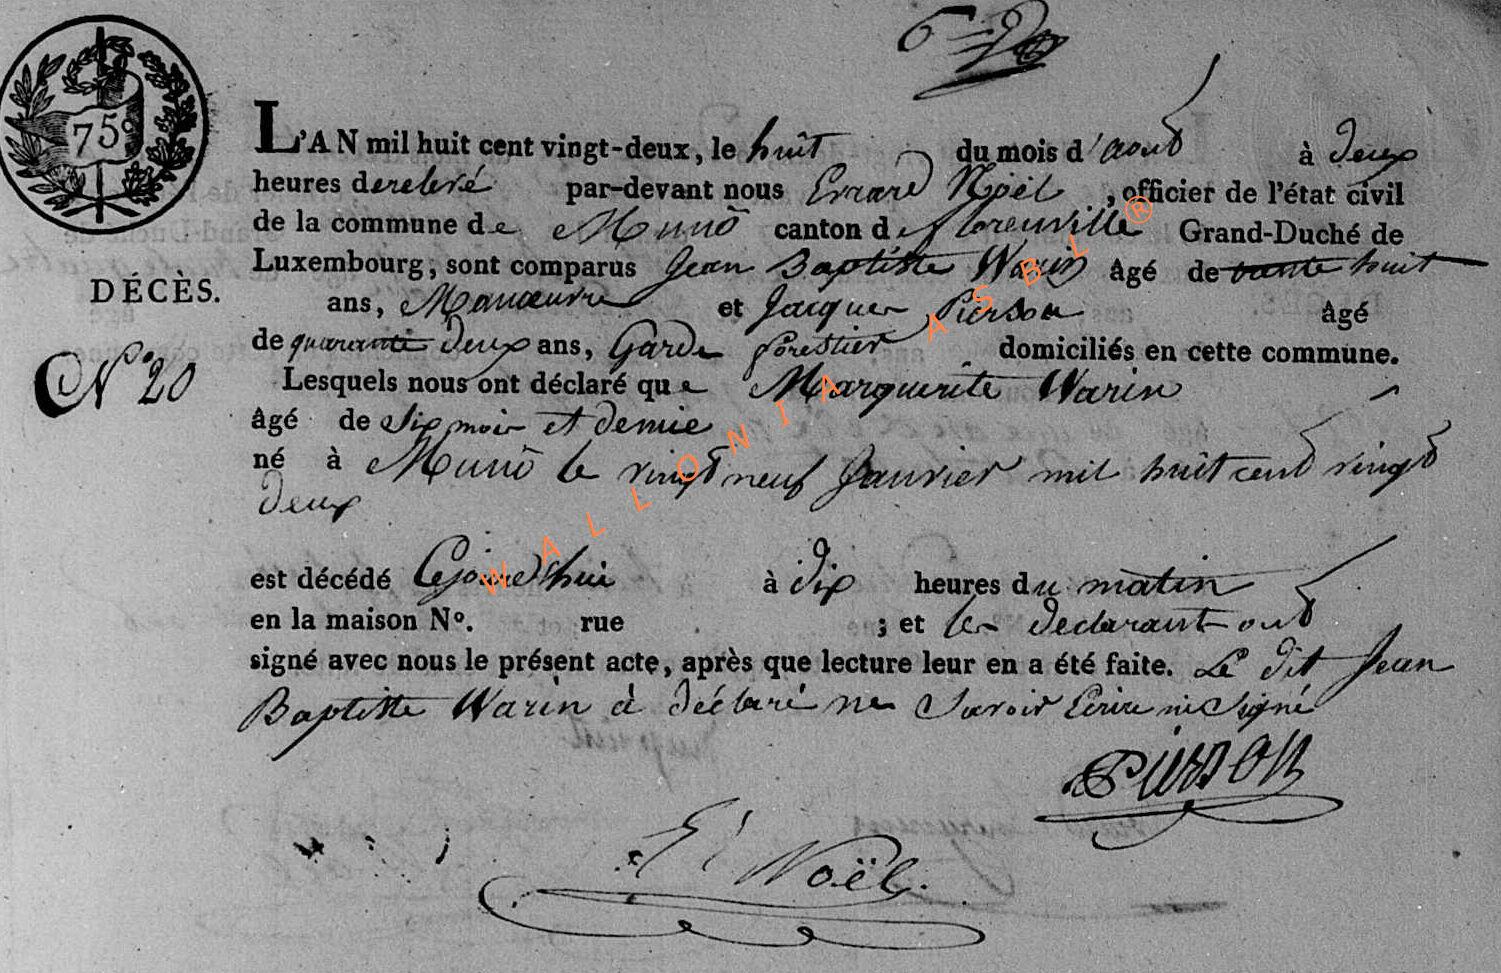 75c
L'AN mil huit cent vingt-deux, le huit du mois d'aout à deux
heures de relevé par-devant nous Errard Noël, officier de l'état civil
de la commune de Muno canton de florenville Grand-Duché de
Luxembourg, sont comparus Jean Baptiste Warin âgé de trente huit
DÉCÈS.
ans, Manoeuvre et Jacques Pierson âgé
de quarante deux ans, Garde forestier domiciliés en cette commune.
N° 20
Lesquels nous ont déclaré que Marguerite Warin
âgé de six mois et demie
né à Muno le vingt neuf Janvier mil huit cent vingt
deux
est décédé Cejourd'hui à dix heures du matin
en la maison N°. rue ; et les declarant ont
signé avec nous le présent acte, après que lecture leur en a été faite. Le dit Jean
Baptiste Warin à déclaré ne savoir Ecrire ni signé
Pierson
E Noël.
WALLONIA ASBL®